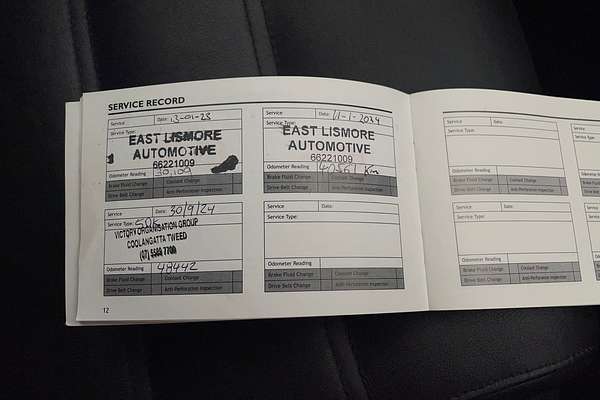 SERVICE RECORD
Service Date: 13-01-23
Service Type:
EAST LISMORE
AUTOMOTIVE
66221009
Odometer Reading 30,109
Brake Fluid Change Coolant Change
Drive Belt Change Anti-Perforation Inspection
Service Date: 11-1-2024
Service Type:
EAST LISMORE
AUTOMOTIVE
66221009
Odometer Reading Km
Brake Fluid Change Coolant Change
Drive Belt Change Anti-Perforation Inspection
Service Date: 30/9/24
Service Type: 50K
VICTORY ORGANISATION GROUP
COOLANGATTA TWEED
Odometer Reading 48442
Brake Fluid Change Coolant Change
Drive Belt Change Anti-Perforation Inspection
Service Date:
Service Type:
Odometer Reading
Brake Fluid Change Coolant Change
Drive Belt Change Anti-Perforation Inspection
12
Service Date:
Service Type:
Odometer Reading
Brake Fluid Change Coolant Change
Drive Belt Change Anti-Perforation Inspection
Service Date:
Service Type:
Odometer Reading
Brake Fluid Change Coolant Change
Drive Belt Change Anti-Perforation Inspection